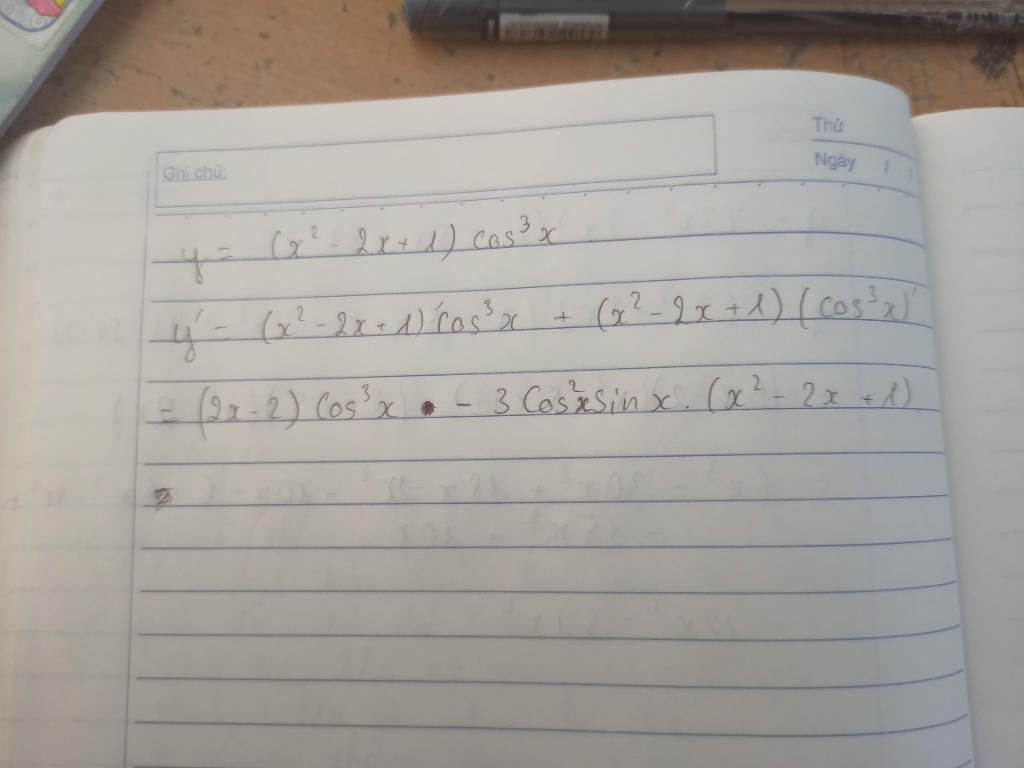 Thứ
Ghi chú:
Ngày / /
y = (x² - 2x + 1) cos³x
y' = (x² - 2x + 1)' cos³x + (x² - 2x + 1) (cos³x)'
= (2x - 2) cos³x • - 3 cos²x sin x . (x² - 2x + 1)